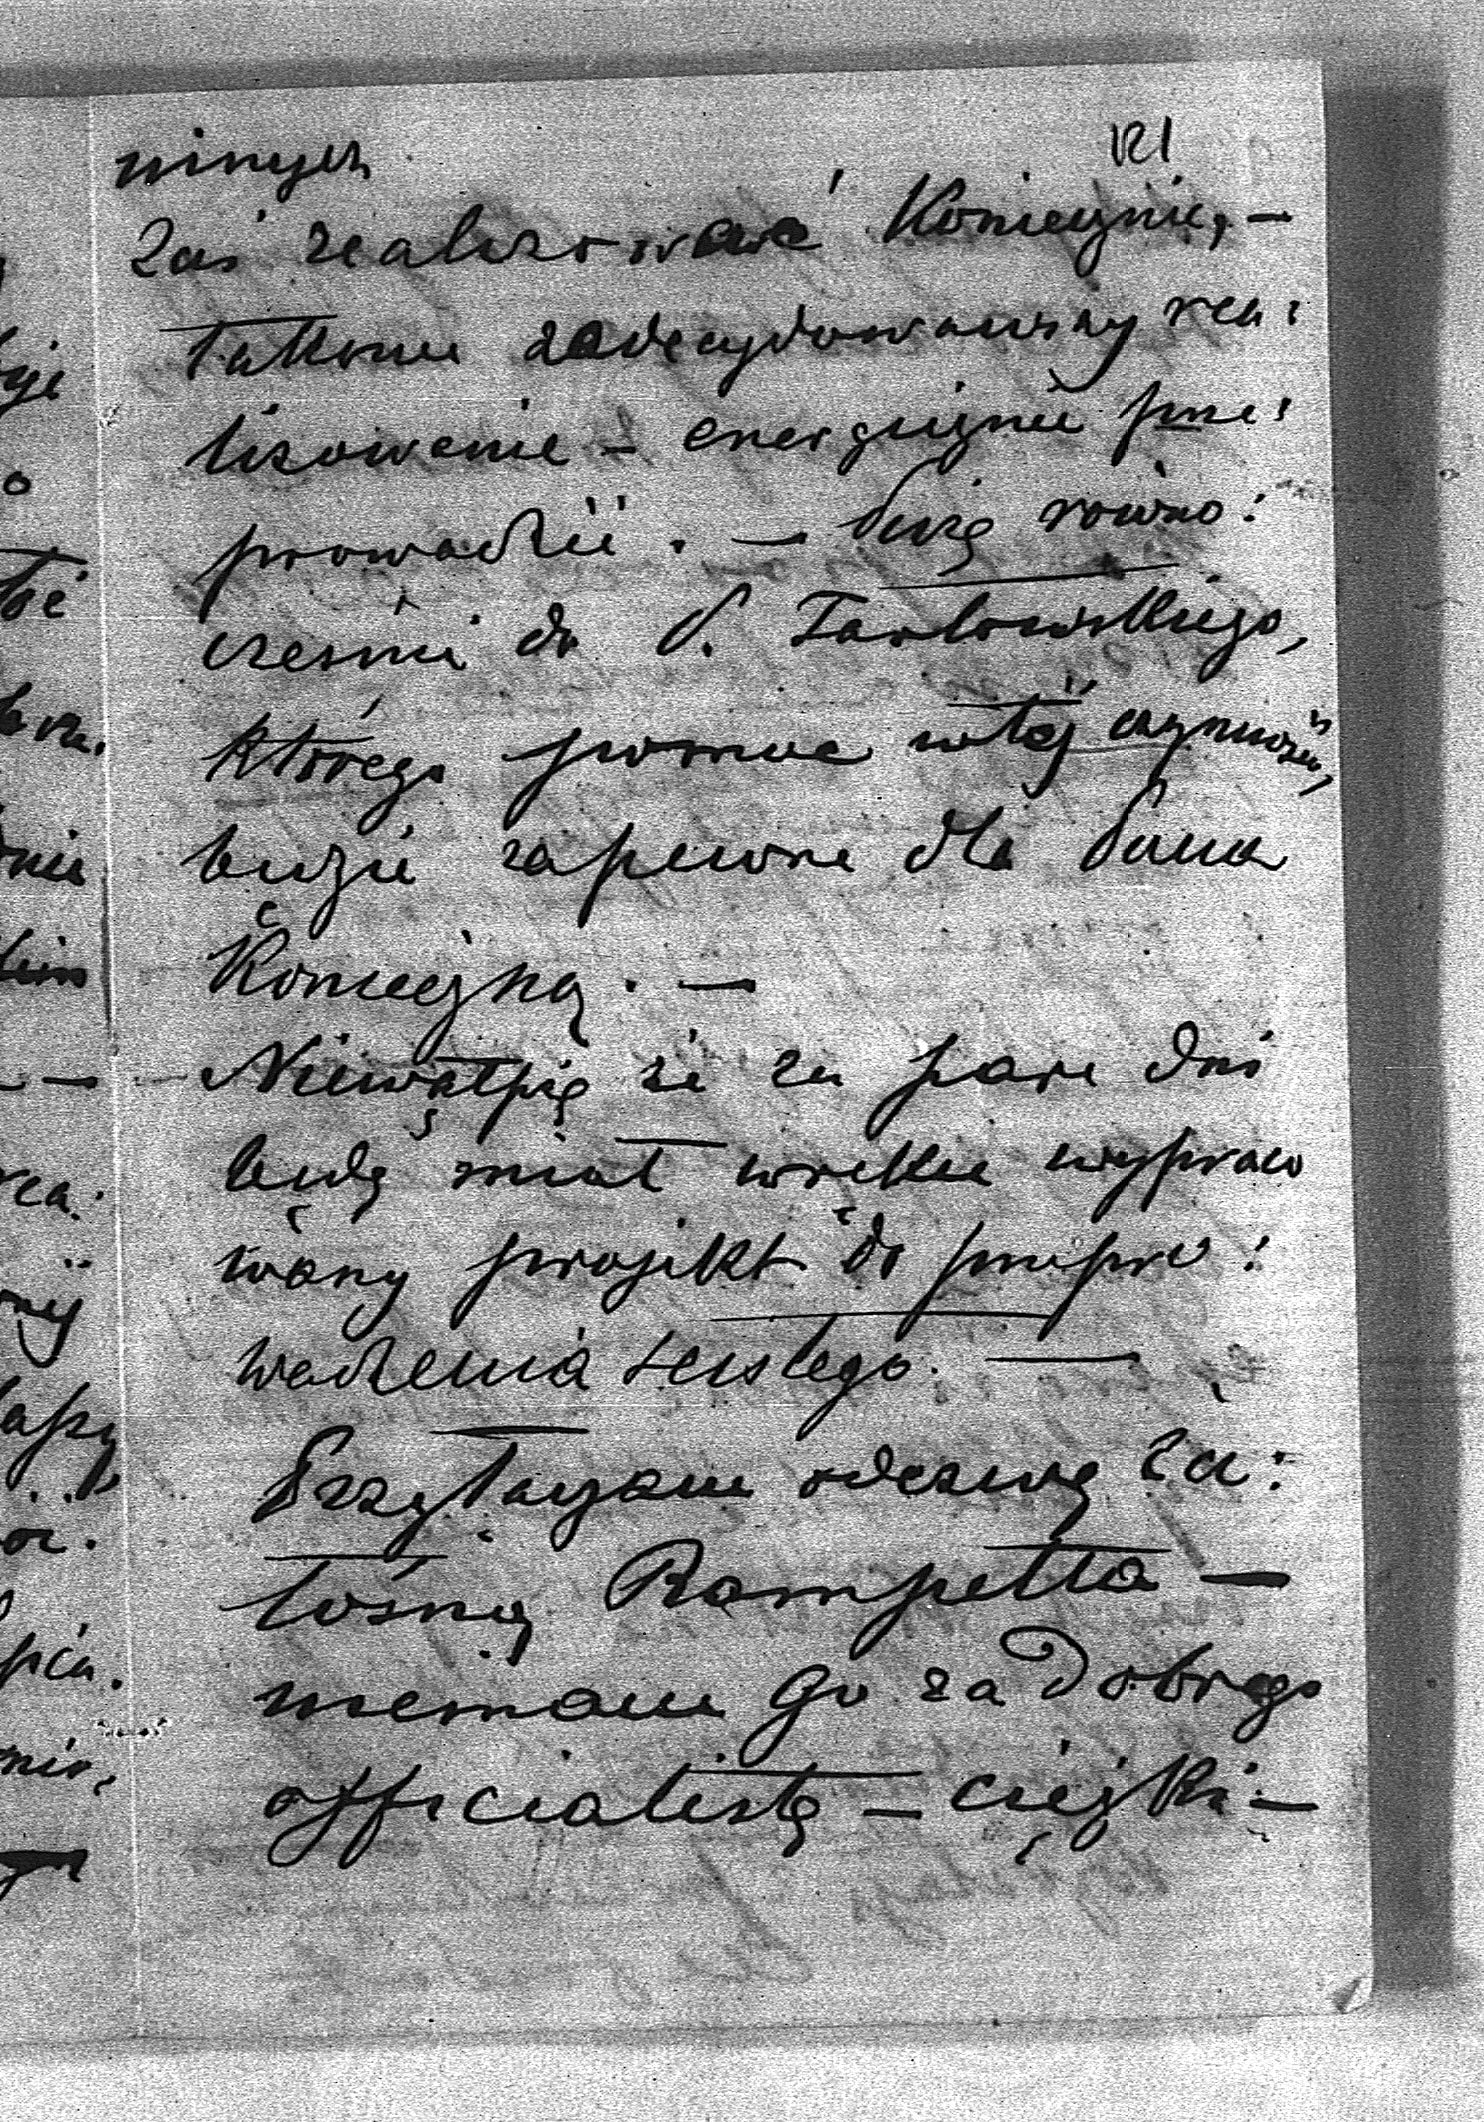 121
innych
zaś realizować Koniecznie, —
takowe zadecydowawszy rea:
lizowanie — energicznie prze:
prowadzić. — Piszę równo:
cześnie do P. Tarłowskiego,
którego pomoc w tej czynności,
będzie zapewne dla Pana
Konieczną. —
Niewątpię że za parę dni
będę miał w ręku wypraco
wany projekt do przepro:
wadzenia ścisłego. —
Przeczytałem odezwę ża:
łośną Rampelta —
niemam Go za dobrego
officialistę — ciężki —